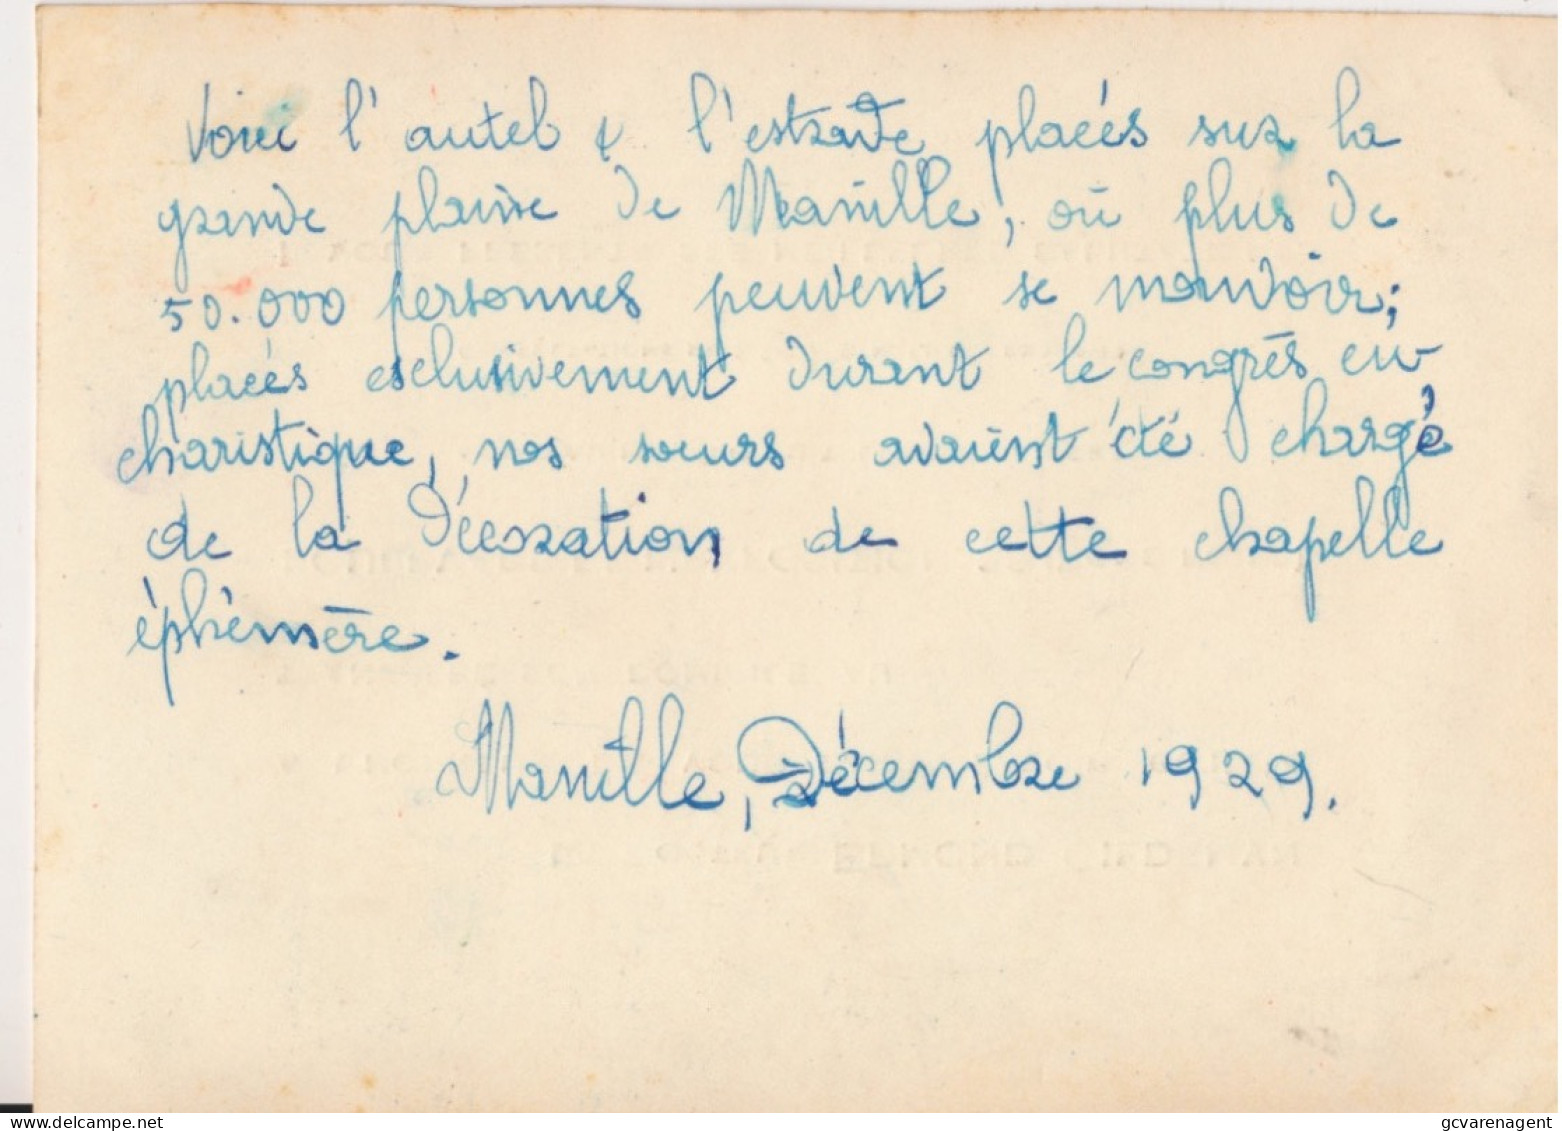 Voici l'autel & l'estrade placés sur la
grande plaine de Manille, où plus de
50.000 personnes peuvent se mouvoir;
placés esclusivement durant le congrès eu-
charistique, nos sœurs avaient été chargé
de la décoration de cette chapelle
éphémère.
Manille, Décembre 1929.
gcvarenagent